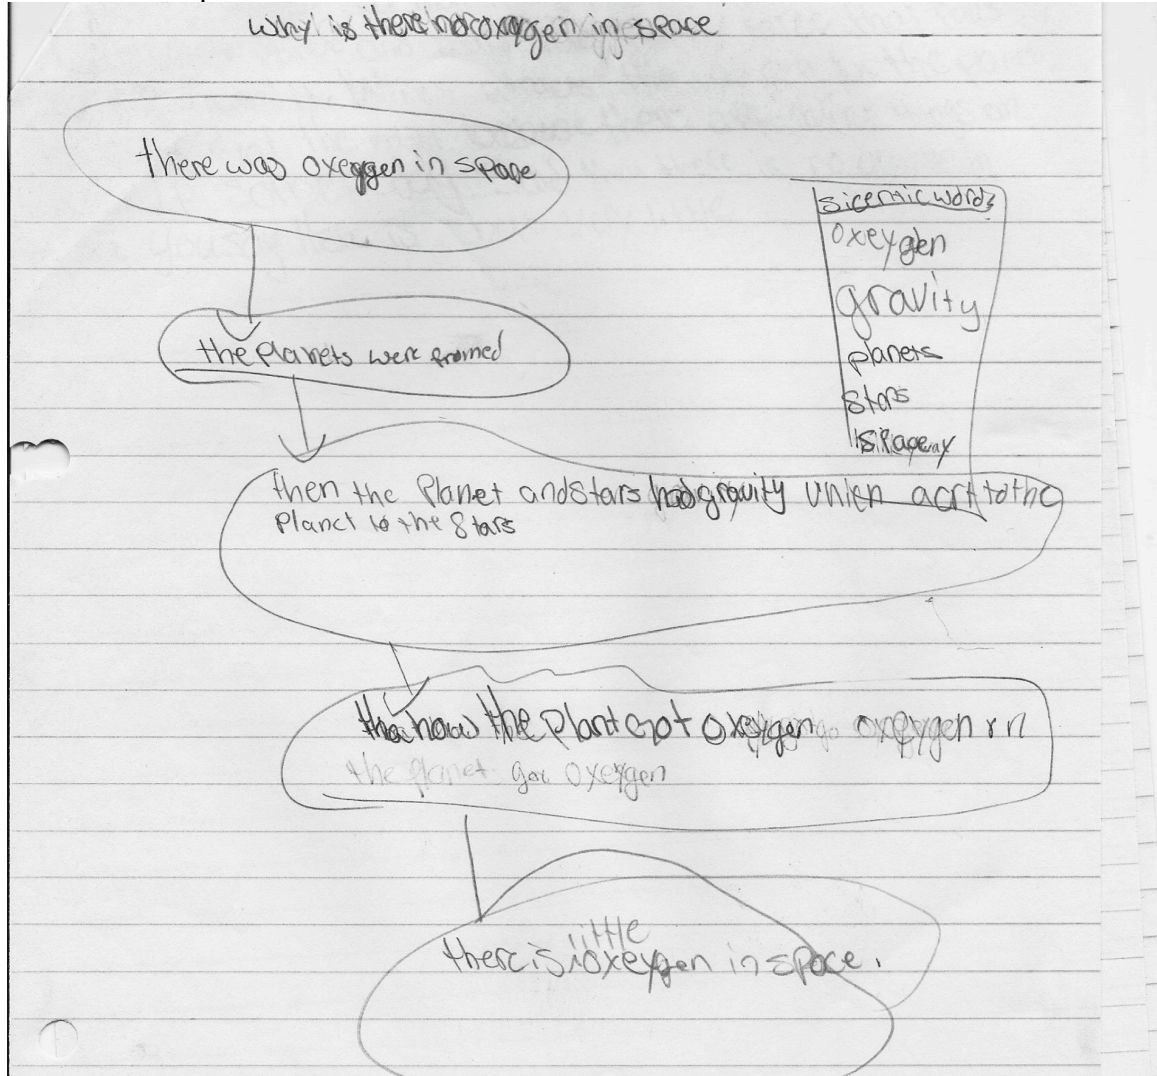 why is there no oxygen in space
there was oxeygen in space
sicentic words
oxeygen
gravity
planets
stars
space
the planets were fromed
then the Planet and stars had gravity to the
Planet to the Stars
the plant got oxeygen oxeygen
the planet got oxeygen
little
there is oxeygen in space.